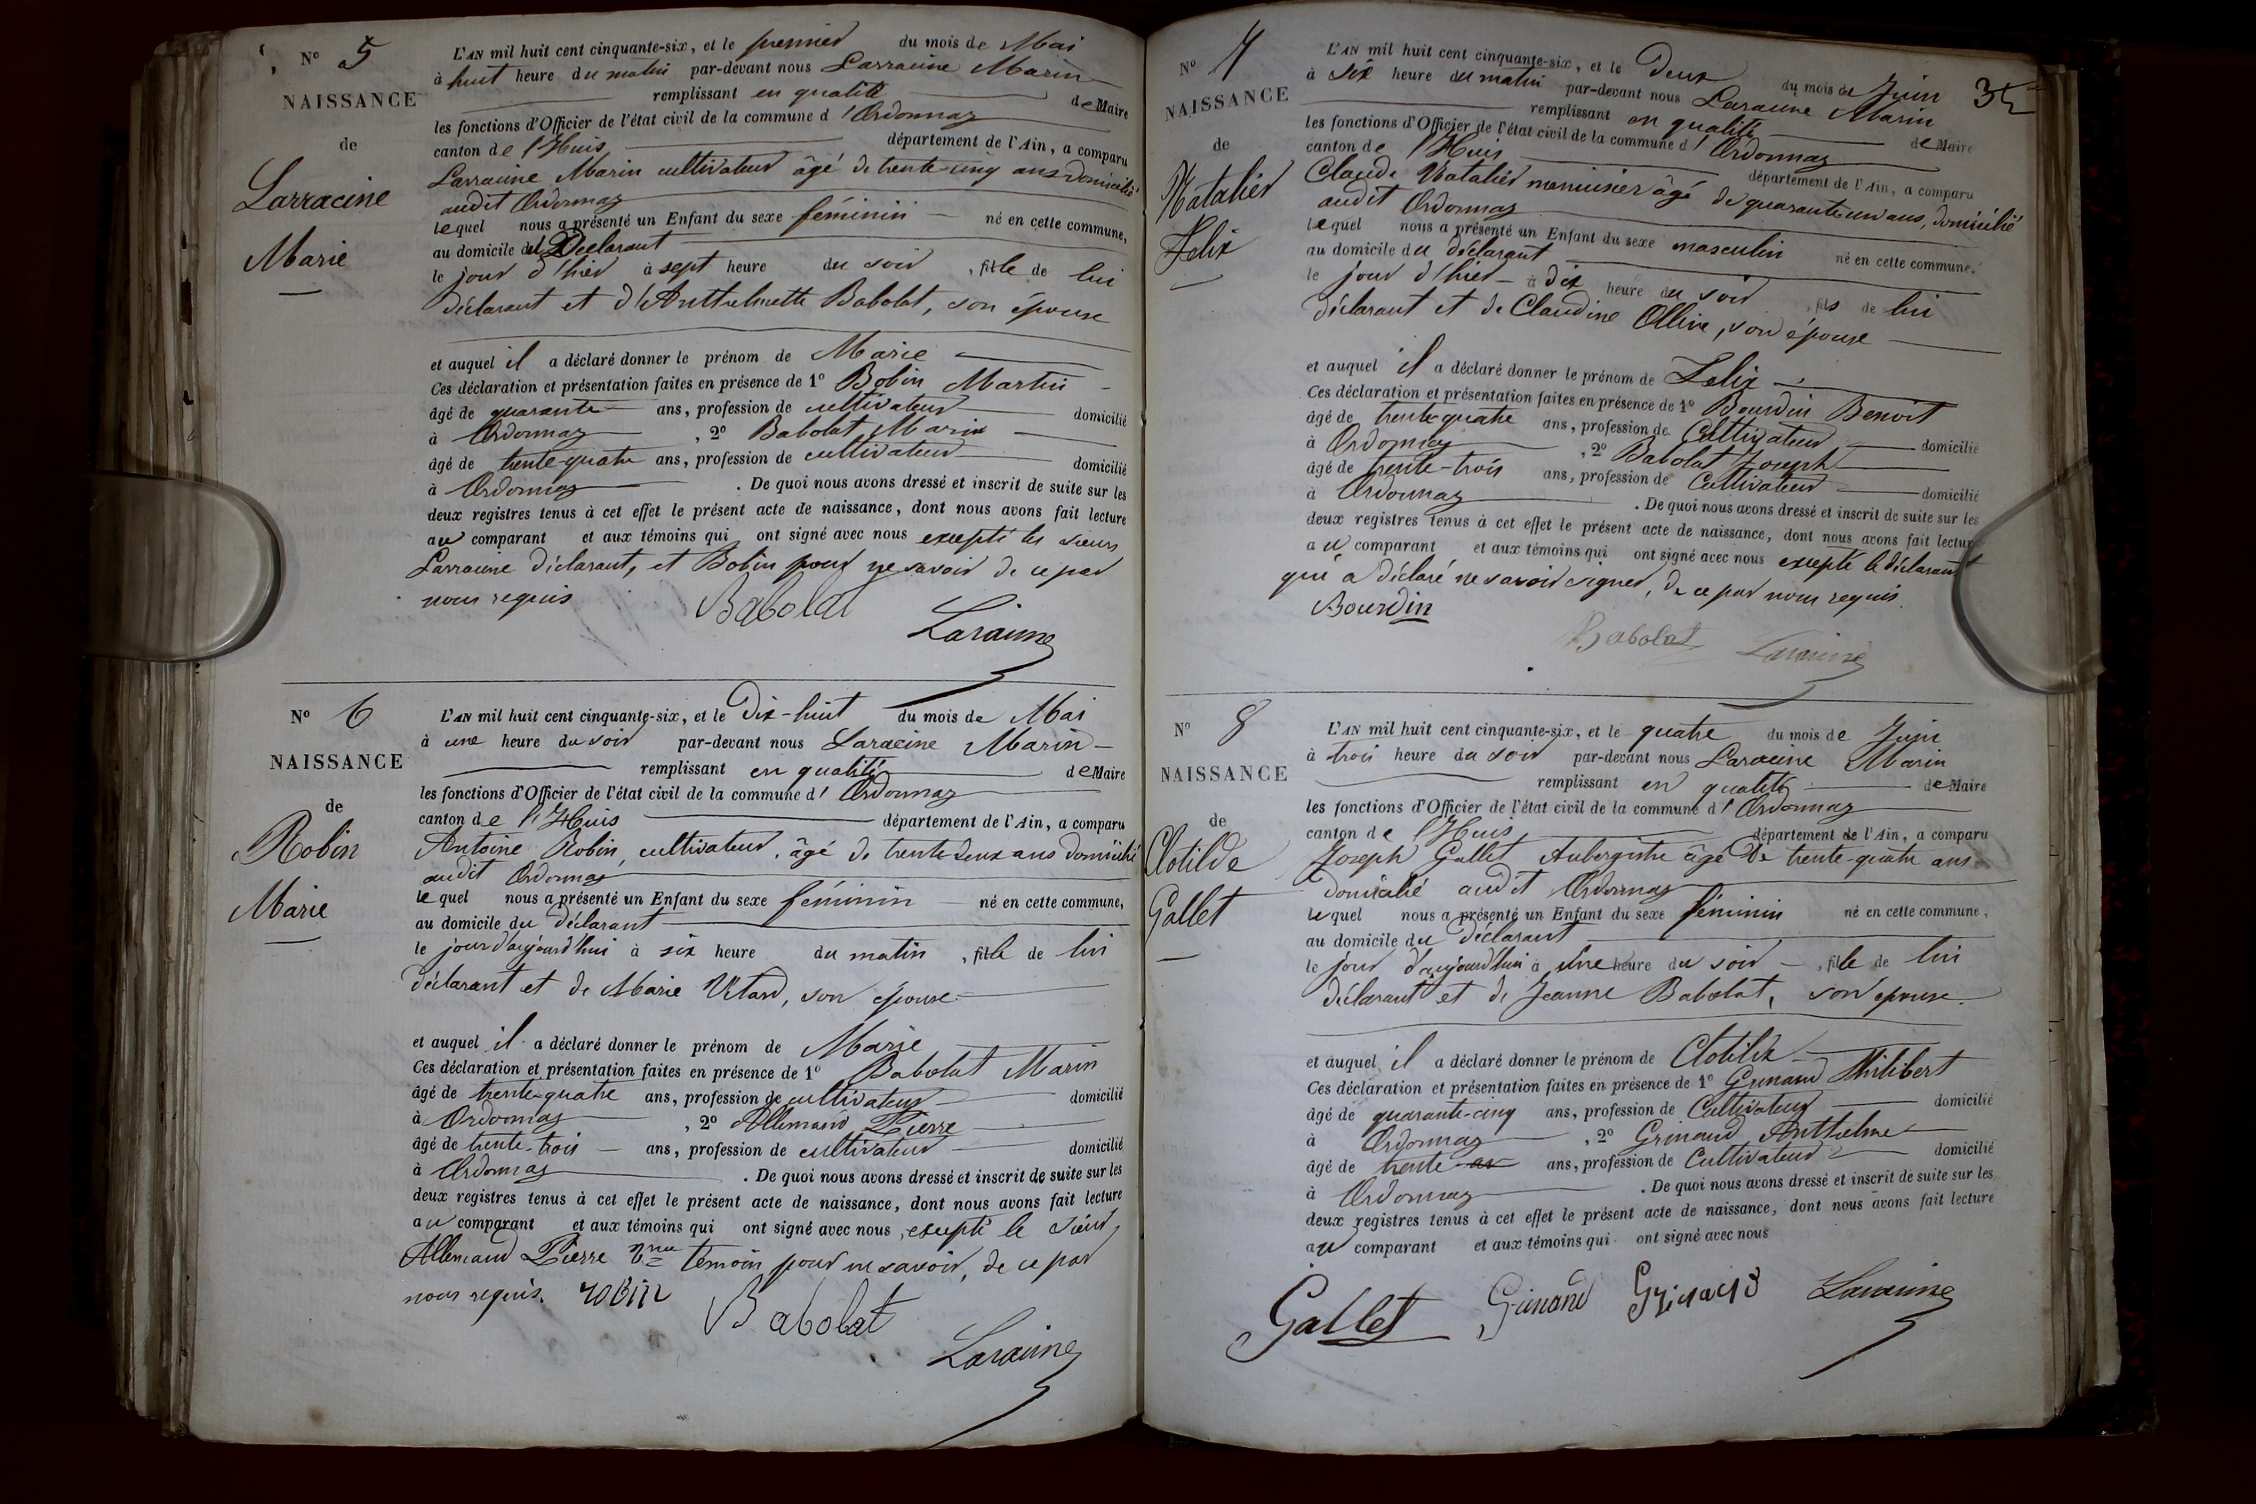 N° 5
NAISSANCE
de
Larracine
Marie
L'AN mil huit cent cinquante-six, et le premier du mois de Mai
à huit heure du matin par-devant nous Larracine Marin
remplissant en qualité de Maire
les fonctions d'Officier de l'état civil de la commune d'Ordonnaz
canton de l'Huis département de l'Ain, a comparu
Larracine Marin cultivateur âgé de trente-cinq ans domicilié
audit Ordonnaz
lequel nous a présenté un Enfant du sexe féminin né en cette commune,
au domicile du Déclarant
le jour d'hier à sept heure du soir, fille de lui
déclarant et d'Anthelmette Babolat, son épouse
et auquel il a déclaré donner le prénom de Marie
Ces déclaration et présentation faites en présence de 1° Bobin Martin
âgé de quarante ans, profession de cultivateur domicilié
à Ordonnaz, 2° Babolat Marin
âgé de trente-quatre ans, profession de cultivateur domicilié
à Ordonnaz. De quoi nous avons dressé et inscrit de suite sur les
deux registres tenus à cet effet le présent acte de naissance, dont nous avons fait lecture
au comparant et aux témoins qui ont signé avec nous excepté les sieurs
Larracine déclarant, et Bobin pour ne savoir de ce par
nous requis
Babolat
Laracine
N° 6
NAISSANCE
de
Robin
Marie
L'AN mil huit cent cinquante-six, et le Dix-huit du mois de Mai
à une heure du soir par-devant nous Laracine Marin
remplissant en qualité de Maire
les fonctions d'Officier de l'état civil de la commune d'Ordonnaz
canton de l'Huis département de l'Ain, a comparu
Antoine Robin, cultivateur, âgé de trente-deux ans domicilié
audit Ordonnaz
lequel nous a présenté un Enfant du sexe féminin né en cette commune,
au domicile du déclarant
le jour d'aujourd'hui à six heure du matin, fille de lui
déclarant et de Marie Vitard, son épouse.
et auquel il a déclaré donner le prénom de Marie
Ces déclaration et présentation faites en présence de 1° Babolat Marin
âgé de trente-quatre ans, profession de cultivateur domicilié
à Ordonnaz, 2° Allemand Pierre
âgé de trente-trois ans, profession de cultivateur domicilié
à Ordonnaz. De quoi nous avons dressé et inscrit de suite sur les
deux registres tenus à cet effet le présent acte de naissance, dont nous avons fait lecture
au comparant et aux témoins qui ont signé avec nous, excepté le Sieur
Allemand Pierre témoin pour ne savoir, de ce par
nous requis. roBin
Babolat
Laracine
35
N° 7
NAISSANCE
de
Natalier
Felix
L'AN mil huit cent cinquante-six, et le Deux du mois de Juin
à six heure du matin par-devant nous Laracine Marin
remplissant en qualité de Maire
les fonctions d'Officier de l'état civil de la commune d'Ordonnaz
canton de l'Huis département de l'Ain, a comparu
Claude Natalier menuisier âgé de quarante-un ans, domicilié
audit Ordonnaz
lequel nous a présenté un Enfant du sexe masculin né en cette commune.
au domicile du déclarant
le jour d'hier à dix heure du soir, fils de lui
déclarant et de Claudine Ollive, son épouse
et auquel il a déclaré donner le prénom de Felix
Ces déclaration et présentation faites en présence de 1° Bourdin Benoit
âgé de trente-quatre ans, profession de Cultivateur domicilié
à Ordonnaz, 2° Babolat Joseph
âgé de trente-trois ans, profession de Cultivateur domicilié
à Ordonnaz. De quoi nous avons dressé et inscrit de suite sur les
deux registres tenus à cet effet le présent acte de naissance, dont nous avons fait lecture
au comparant et aux témoins qui ont signé avec nous excepté le déclarant
qui a déclaré ne savoir signer, de ce par nous requis.
Bourdin
Babolat Laracine
N° 8
NAISSANCE
de
Clotilde
Gallet
L'AN mil huit cent cinquante-six, et le quatre du mois de Juin
à trois heure du soir par-devant nous Laracine Marin
remplissant en qualité de Maire
les fonctions d'Officier de l'état civil de la commune d'Ordonnaz
canton de l'Huis département de l'Ain, a comparu
Joseph Gallet Aubergiste âgé de trente-quatre ans
domicilié audit Ordonnaz
lequel nous a présenté un Enfant du sexe féminin né en cette commune,
au domicile du déclarant
le jour d'aujourd'hui à Une heure du soir, fille de lui
déclarant et de Jeanne Babolat, son épouse.
et auquel il a déclaré donner le prénom de Clotilde
Ces déclaration et présentation faites en présence de 1° Grinand Philibert
âgé de quarante-cinq ans, profession de Cultivateur domicilié
à Ordonnaz, 2° Grinand Anthelme
âgé de trente ans, profession de Cultivateur domicilié
à Ordonnaz. De quoi nous avons dressé et inscrit de suite sur les
deux registres tenus à cet effet le présent acte de naissance, dont nous avons fait lecture
au comparant et aux témoins qui ont signé avec nous
Gallet Grinand Grinand Laracine